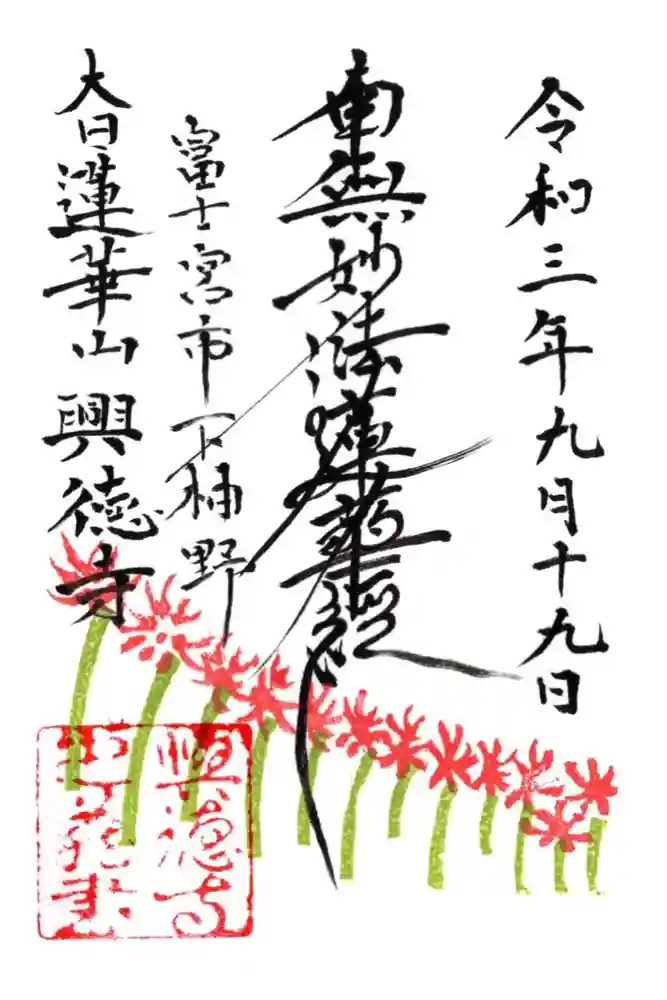 令和三年九月十九日
南無妙法蓮華経
富士宮市下柚野
大日蓮華山 興徳寺
興徳寺